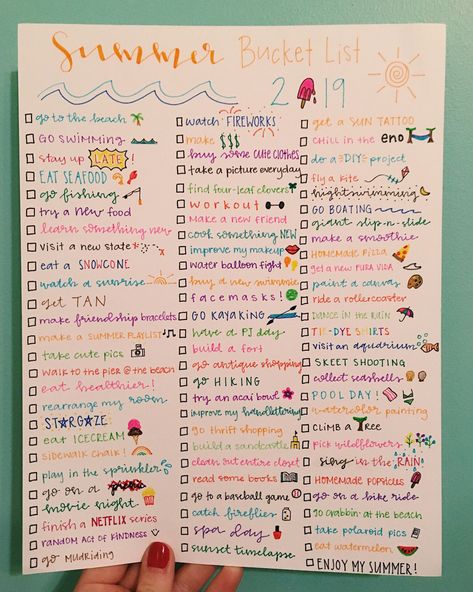 Summer Bucket List
2019
go to the beach
GO SWIMMING
stay up LATE!
EAT SEAFOOD
go fishing
try a NEW food
learn something new
visit a new state
eat a SNOWCONE
watch a sunrise
get TAN
make friendship bracelets
MAKE A SUMMER PLAYLIST
take cute pics
WALK TO THE PIER @ the BEACH
eat healthier!
rearrange my room
STARGAZE
eat ICECREAM
SIDEWALK CHALK!
play in the sprinkler
go on a
movie night
finish a NETFLIX series
RANDOM ACT OF KINDNESS
go MUDRIDING
watch FIREWORKS
make $$$
buy some cute clothes
take a picture everyday
find four-leaf clover
WORKOUT
Make a new friend
cook something NEW
improve my makeup
WATER BALLOON FIGHT
buy a new swimmie
facemasks!
GO KAYAKING
have a PJ day
build a fort
go antique shopping
go HIKING
try an acai bowl
improve my handlettering
go thrift shopping
build a sandcastle
clean out entire closet
read some books
go to a baseball game
catch fireflies
spa day
sunset timelapse
get a SUN TATTOO
CHILL IN THE eno
do a DIY project
fly a kite
nightswimming
GO BOATING
giant slip-n-slide
make a smoothie
HOMEMADE PIZZA
get a new PURA VIDA
paint a canvas
ride a rollercoaster
DANCE IN THE RAIN
TIE-DYE SHIRTS
visit an aquarium
SKEET SHOOTING
collect seashells
POOL DAY!
watercolor painting
CLIMB A TREE
pick wildflowers
sing in the RAIN!
HOMEMADE POPSICLES
go on a bike ride
go crabbin' at the beach
take polaroid pics
eat watermelon
ENJOY MY SUMMER!